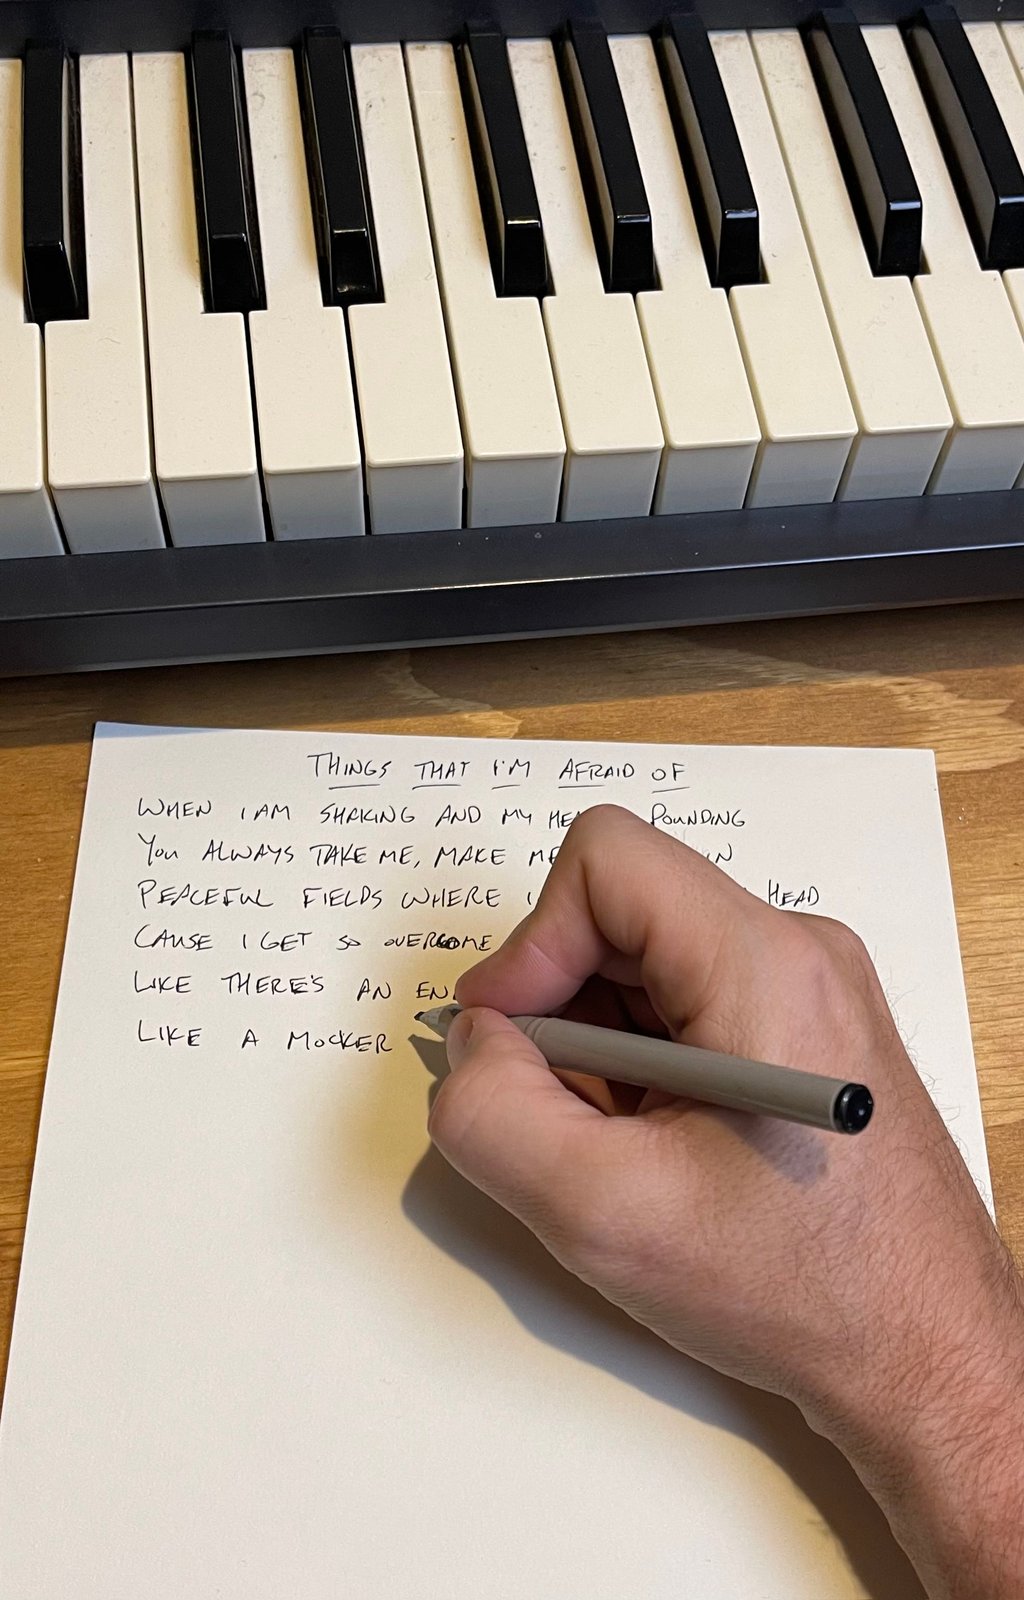 THINGS THAT I'M AFRAID OF
WHEN I AM SHAKING AND MY POUNDING
You ALWAYS TAKE ME, MAKE
PEACEFUL FIELDS WHERE I HEAD
CAUSE I GET SO OVERCOME
LIKE THERE'S AN
LIKE A MOCKER